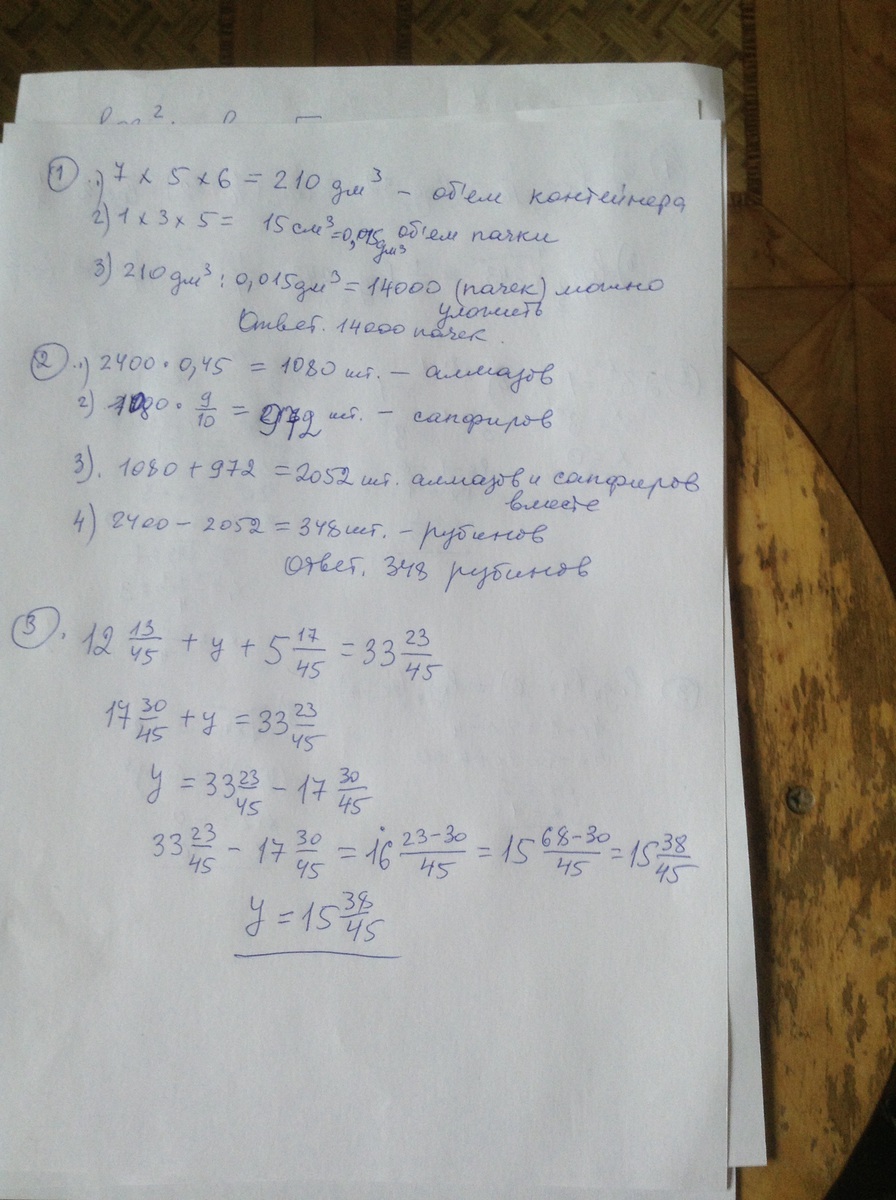 1. 1) 7 x 5 x 6 = 210 дм³ – об'ем контейнера
2) 1 x 3 x 5 = 15 см³ = 0,015 дм³ об'ем пачки
3) 210 дм³ : 0,015 дм³ = 14000 (пачек) можно уложить
Ответ. 14000 пачек.
2. 1) 2400 · 0,45 = 1080 шт. – алмазов
2) 1080 · 9/10 = 972 шт. – сапфиров
3). 1080 + 972 = 2052 шт. алмазов и сапфиров вместе
4) 2400 – 2052 = 348 шт. – рубинов
Ответ. 348 рубинов
3. 12 13/45 + y + 5 17/45 = 33 23/45
17 30/45 + y = 33 23/45
y = 33 23/45 – 17 30/45
33 23/45 – 17 30/45 = 16 23–30/45 = 15 68–30/45 = 15 38/45
y = 15 38/45